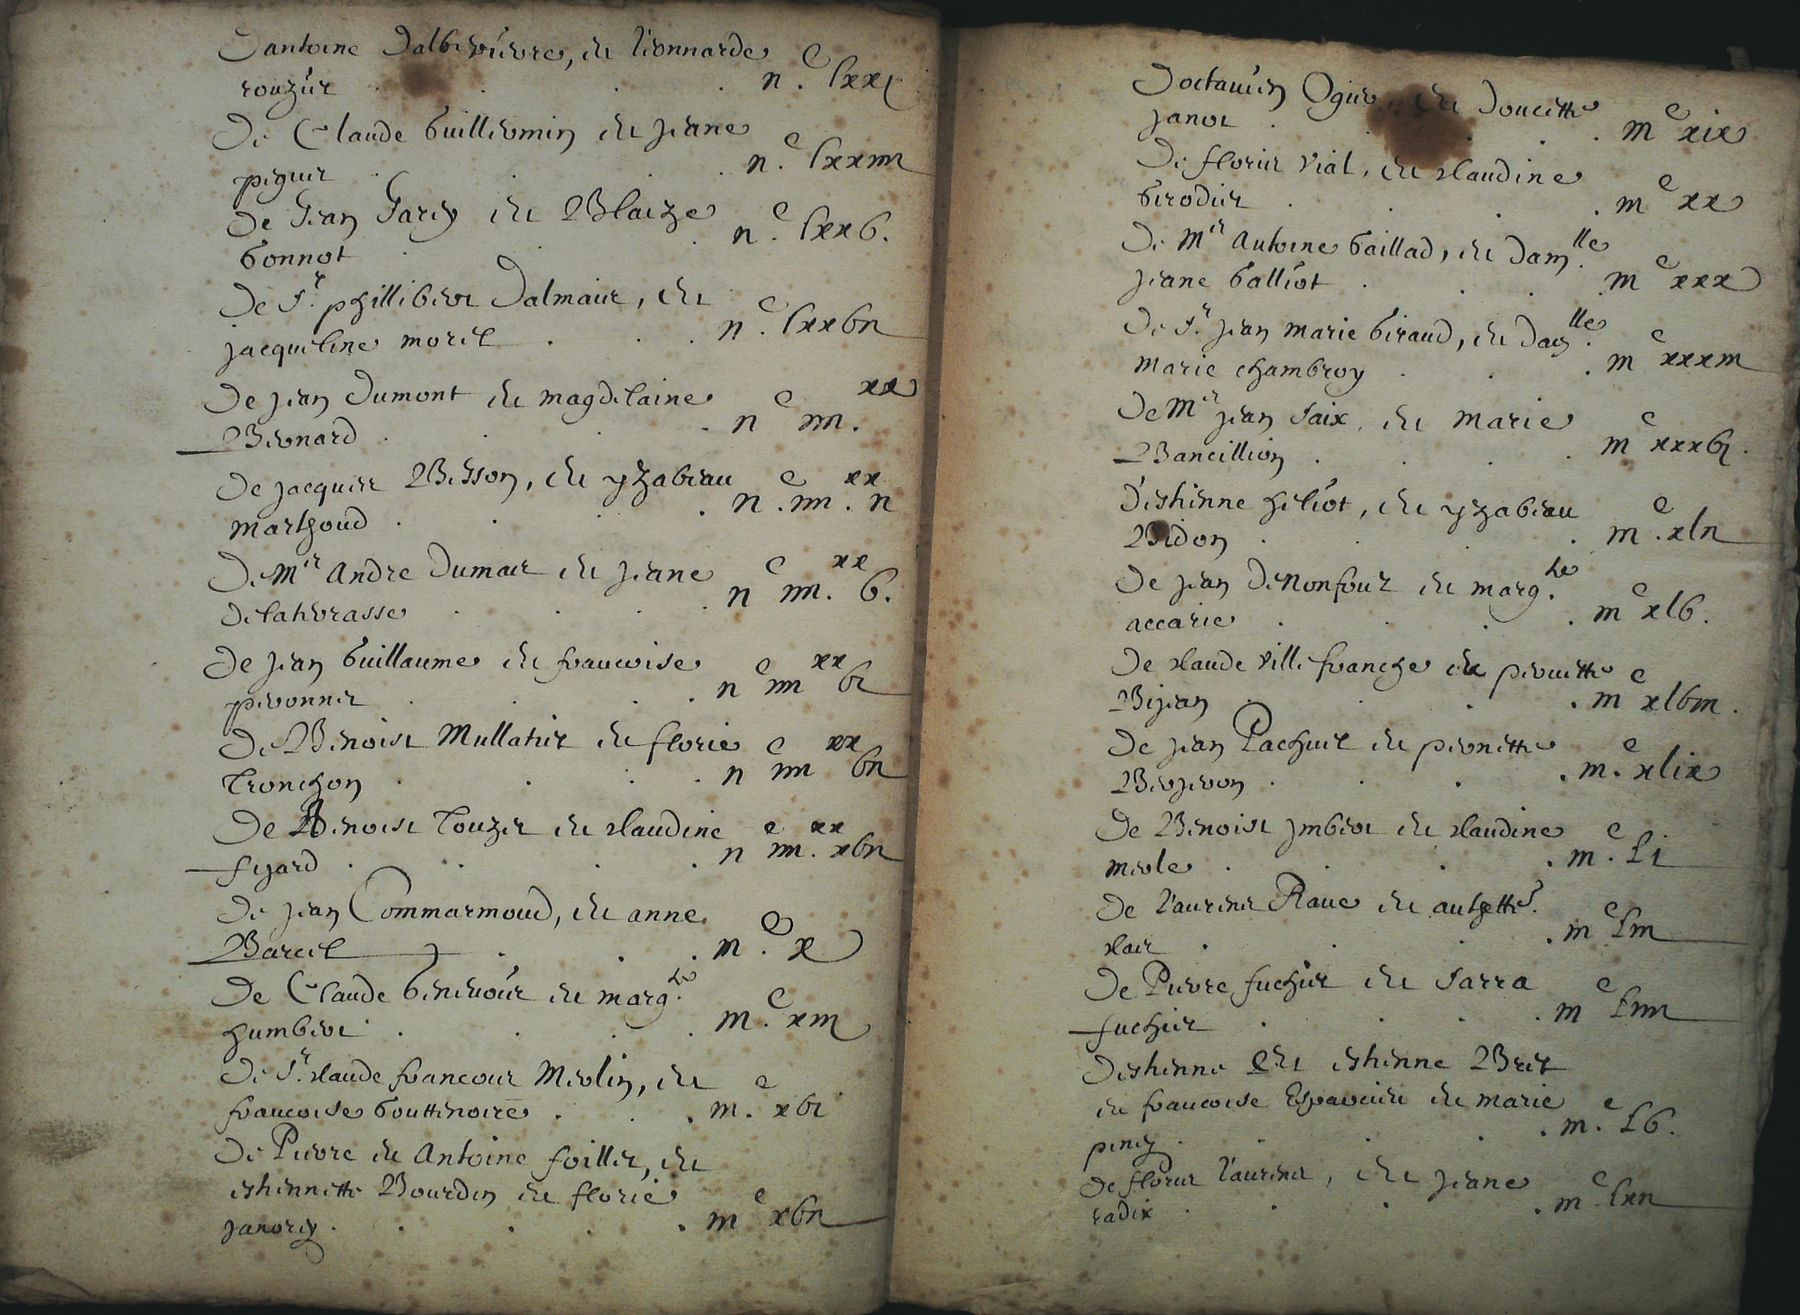 D'antoine Dalbepierre, et Lionnarde
rouzier . . . . ii.c lxxi
De Claude Guillermin et Jeane
peguet . . . ii.c lxxiiii
De Jean Gardy et Blaize
Gonnot . . . ii.c lxxv.
De Sr. phillibert Dalmais, et
jacqueline morel . . . ii.c lxxvii
De jean Dumont et magdelaine
Bernard . . . ii c iiii.xx
De jacques Besson, et yzabeau
marthoud . . . ii.c iiii.xx ii
De Mre andre Dumas et jeane
delaterrasse . . . ii c iiii.xx v.
De jean Guillaume et francoise
peronnet . . . ii c iiii xx vi
De Benoist Mullatier et florie
Tronchon . . . ii c iiii xx vii
De Benoist Touzet et claudine
fejard . . . ii c iiii.xx xvii
De jean Commarmond, et anne
Barcel . . . iii.c x
De Claude Genevois et marg.te
humbert . . . iii.c xiii
De Sr. claude francois Merlin, et
francoise Gouttenoire . . . iii.c xvi
De Pierre et Antoine foillet, et
estiennette Bourdin et florie
janorey . . . iii c xvii
D'octavien Ogier, et Doucette
janot . . . iii c xix
De floris vial, et claudine
Girodier . . . iii c xx
De Mre Antoine Gaillad, et dam.lle
jeane Galliot . . . iii c xxx
De Sr. jean marie Giraud, et dam.lle
marie chambroy . . . iii c xxxiii
De Mre jean Saix, et marie
Bancillion . . . iii c xxxvi.
D'estienne heliot, et yzabeau
Bidon . . . iii c.xlii
De jean Denonfoux et marg.te
accarie . . . iii c xlv.
De claude villefranche et pernette
Bijean . . . iii c xlviii.
De jean Pachuel et pernette
Berjeron . . . iii.c xlix
De Benoist jmbert et claudine
merle . . . iii.c Li
De Laurent Rave et anth.tte
clair . . . iii c Liii
De Pierre fuchier et Sarra
fuchier . . . iii c Liiii
D'estienne et estienne Bret
et francoise Espararin et marie
piney . . . iii.c Lv.
De floris Laurent, et jeane
radix . . . iii c lxii